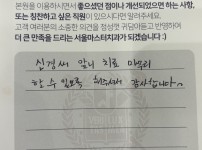 본원을 이용하시면서 좋으셨던 점이나 개선되었으면 하는 사항,
또는 칭찬하고 싶은 직원이 있으시다면 알려주세요.
고객 여러분의 소중한 의견을 정성껏 귀담아듣고 반영하여
더 큰 만족을 드리는 서울마스터치과가 되겠습니다 :)
신경써 치료
할 수 있도록 해주셔서 감사합니다~